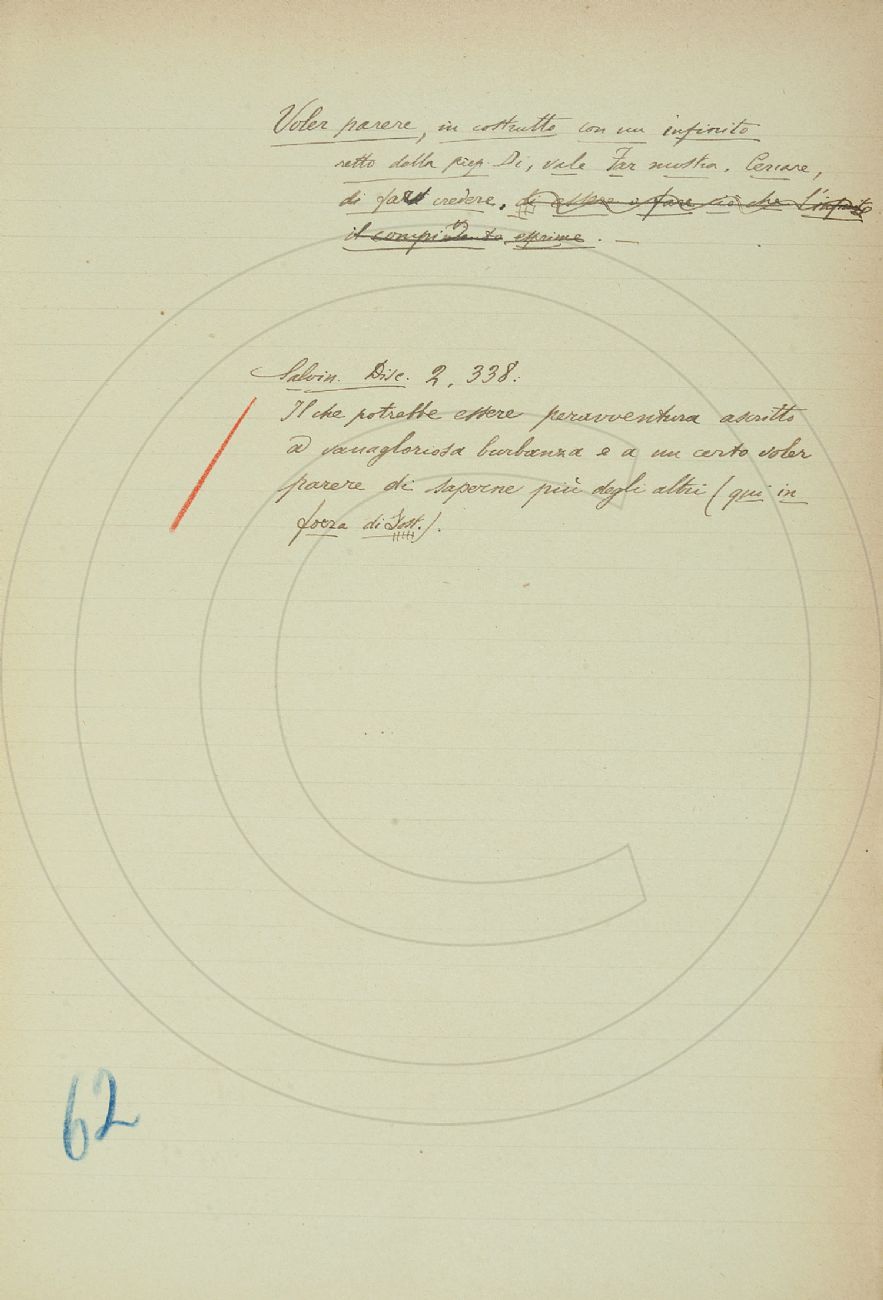 Voler parere, in costrutto con un infinito
retto dalla prep. Di, vale Far mostra, Cercare,
di far credere, di essere o fare ciò che l'infinito
il compimento esprime. —
Salvin. Disc. 2. 338:
Il che potrebbe essere peravventura ascritto
a vanagloriosa burbanza e a un certo voler
parere di saperne più degli altri (qui in
forza di Sost.).
62